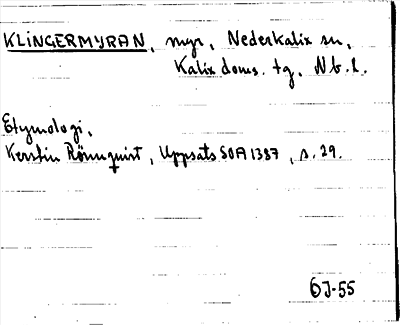 KLINGERMYRAN, myr, Nederkalix sn,
Kalix doms. tg, Nb. l.
Etymologi,
Kerstin Rönnquist, Uppsats SOA 1387, s. 29.
6J-55